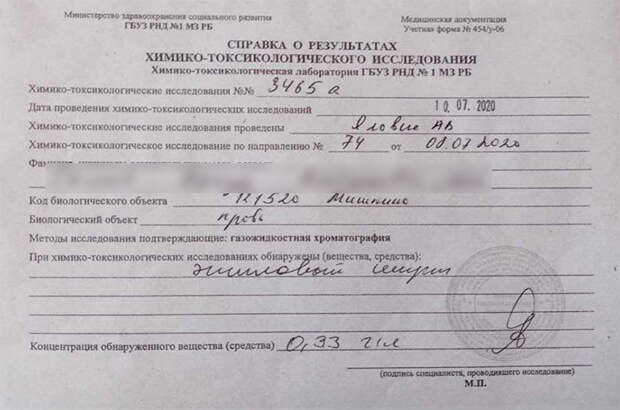 Министерство здравоохранения социального развития
ГБУЗ РНД №1 МЗ РБ
Медицинская документация
Учетная форма № 454/у-06
СПРАВКА О РЕЗУЛЬТАТАХ
ХИМИКО-ТОКСИКОЛОГИЧЕСКОГО ИССЛЕДОВАНИЯ
Химико-токсикологическая лаборатория ГБУЗ РНД № 1 МЗ РБ
Химико-токсикологические исследования №№ 3465 а
Дата проведения химико-токсикологических исследований 10.07.2020
Химико-токсикологические исследования проведены
Химико-токсикологическое исследование по направлению № 74 от 08.07.2020
Код биологического объекта К1520
Биологический объект кровь
Методы исследования подтверждающие: газожидкостная хроматография
При химико-токсикологических исследованиях обнаружены (вещества, средства):
этиловый спирт
Концентрация обнаруженного вещества (средства) 0,33 г/л
(подпись специалиста, проводившего исследование)
М.П.